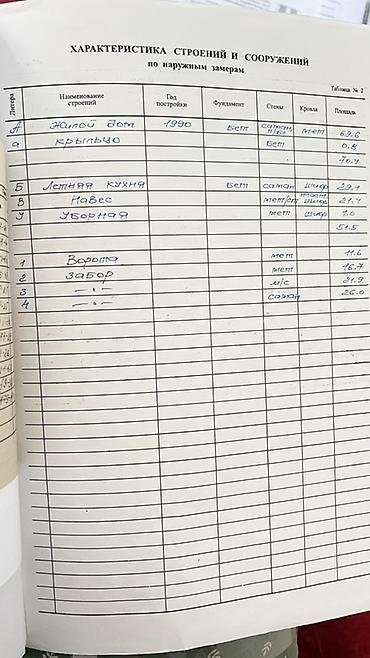 ХАРАКТЕРИСТИКА СТРОЕНИЙ И СООРУЖЕНИЙ
по наружным замерам
Таблица № 2
Литера Наименование строений Год постройки Фундамент Стены Кровля Площадь
А Жилой дом 1990 Бет саман, мет 69.6
а крыльцо Бет 0.8
70.4
Б Летняя кухня Бет саман шиф 29.1
В Навес мет/ст шиф 21.4
У Уборная мет шиф 1.0
51.5
1 Ворота мет 11.6
2 Забор мет 16.7
3 —"— м/с 21.9
4 —"— саман 26.0